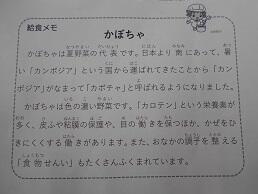 給食メモ
かぼちゃ
かぼちゃは夏野菜の代表です。日本より南にあって、暑
い「カンボジア」という国から運ばれてきたことから「カン
ボジア」がなまって「カボチャ」と呼ばれるようになりました。
かぼちゃは色の濃い野菜です。「カロテン」という栄養素が
多く、皮ふや粘膜の保護や、目の働きを保つほか、かぜをひ
きにくくする働きがあります。また、おなかの調子を整える
「食物せんい」もたくさんふくまれています。